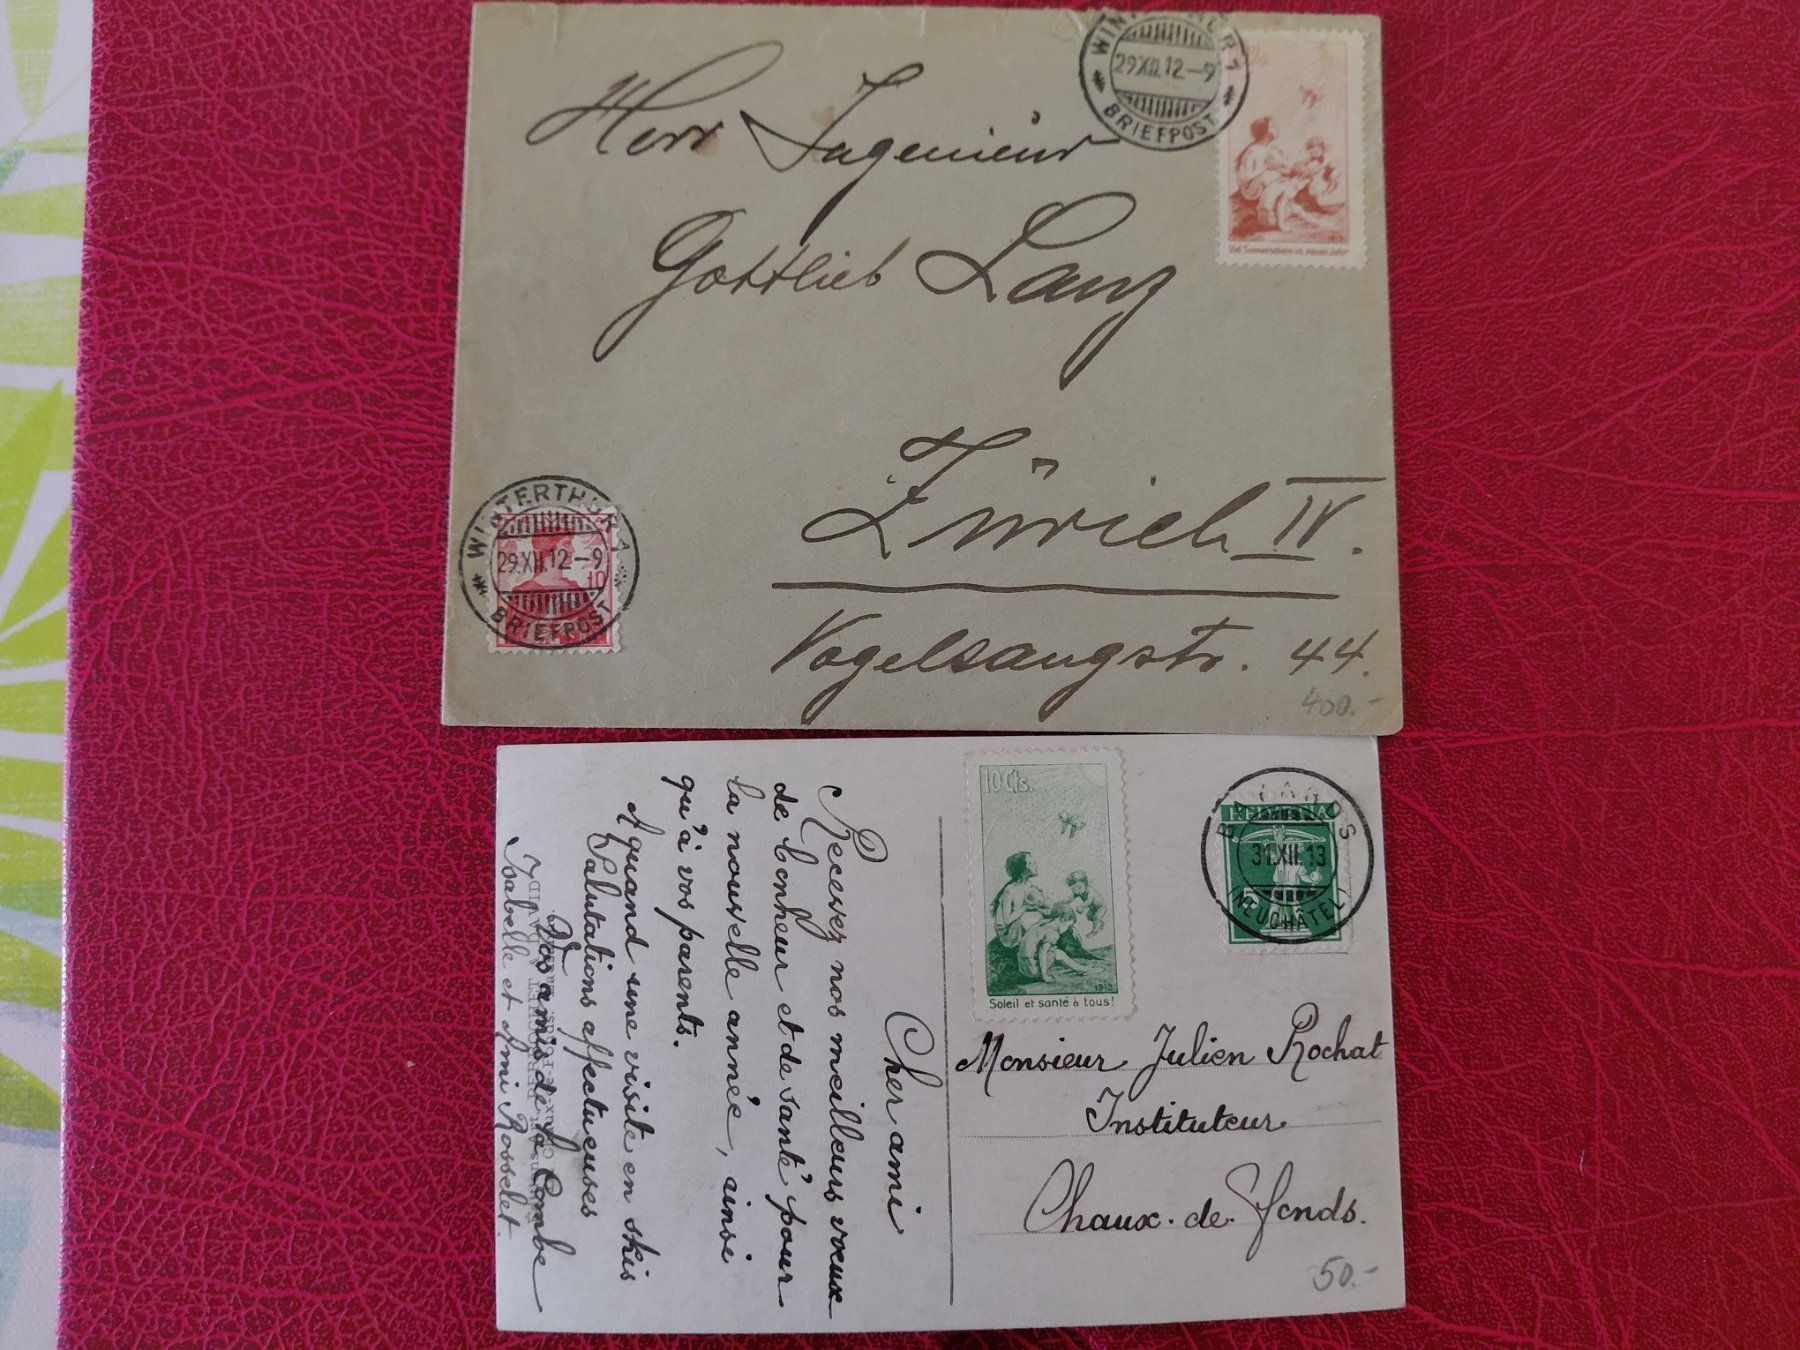 WINTERTHUR 1
29.XII.12–9
BRIEFPOST
Herr Ingenieur
Gottlieb Lanz
Zürich IV.
Vogelsangstr. 44.
400.-
Viel Sonnenschein im neuen Jahr
1912
WINTERTHUR 1
29.XII.12–9
BRIEFPOST
10
10 Cts.
1912
Soleil et santé à tous!
HELVETIA
5
BAYARDS
31.XII.13
(NEUCHÂTEL)
Monsieur Julien Rochat
Instituteur
Chaux-de-Fonds.
50.-
Cher ami
Recevez nos meilleurs voeux
de bonheur et de santé pour
la nouvelle année, ainsi
qu'à vos parents.
A quand une visite en skis
Salutations affectueuses
Vos amis de la Combe
Isabelle et Ami Rosselet.